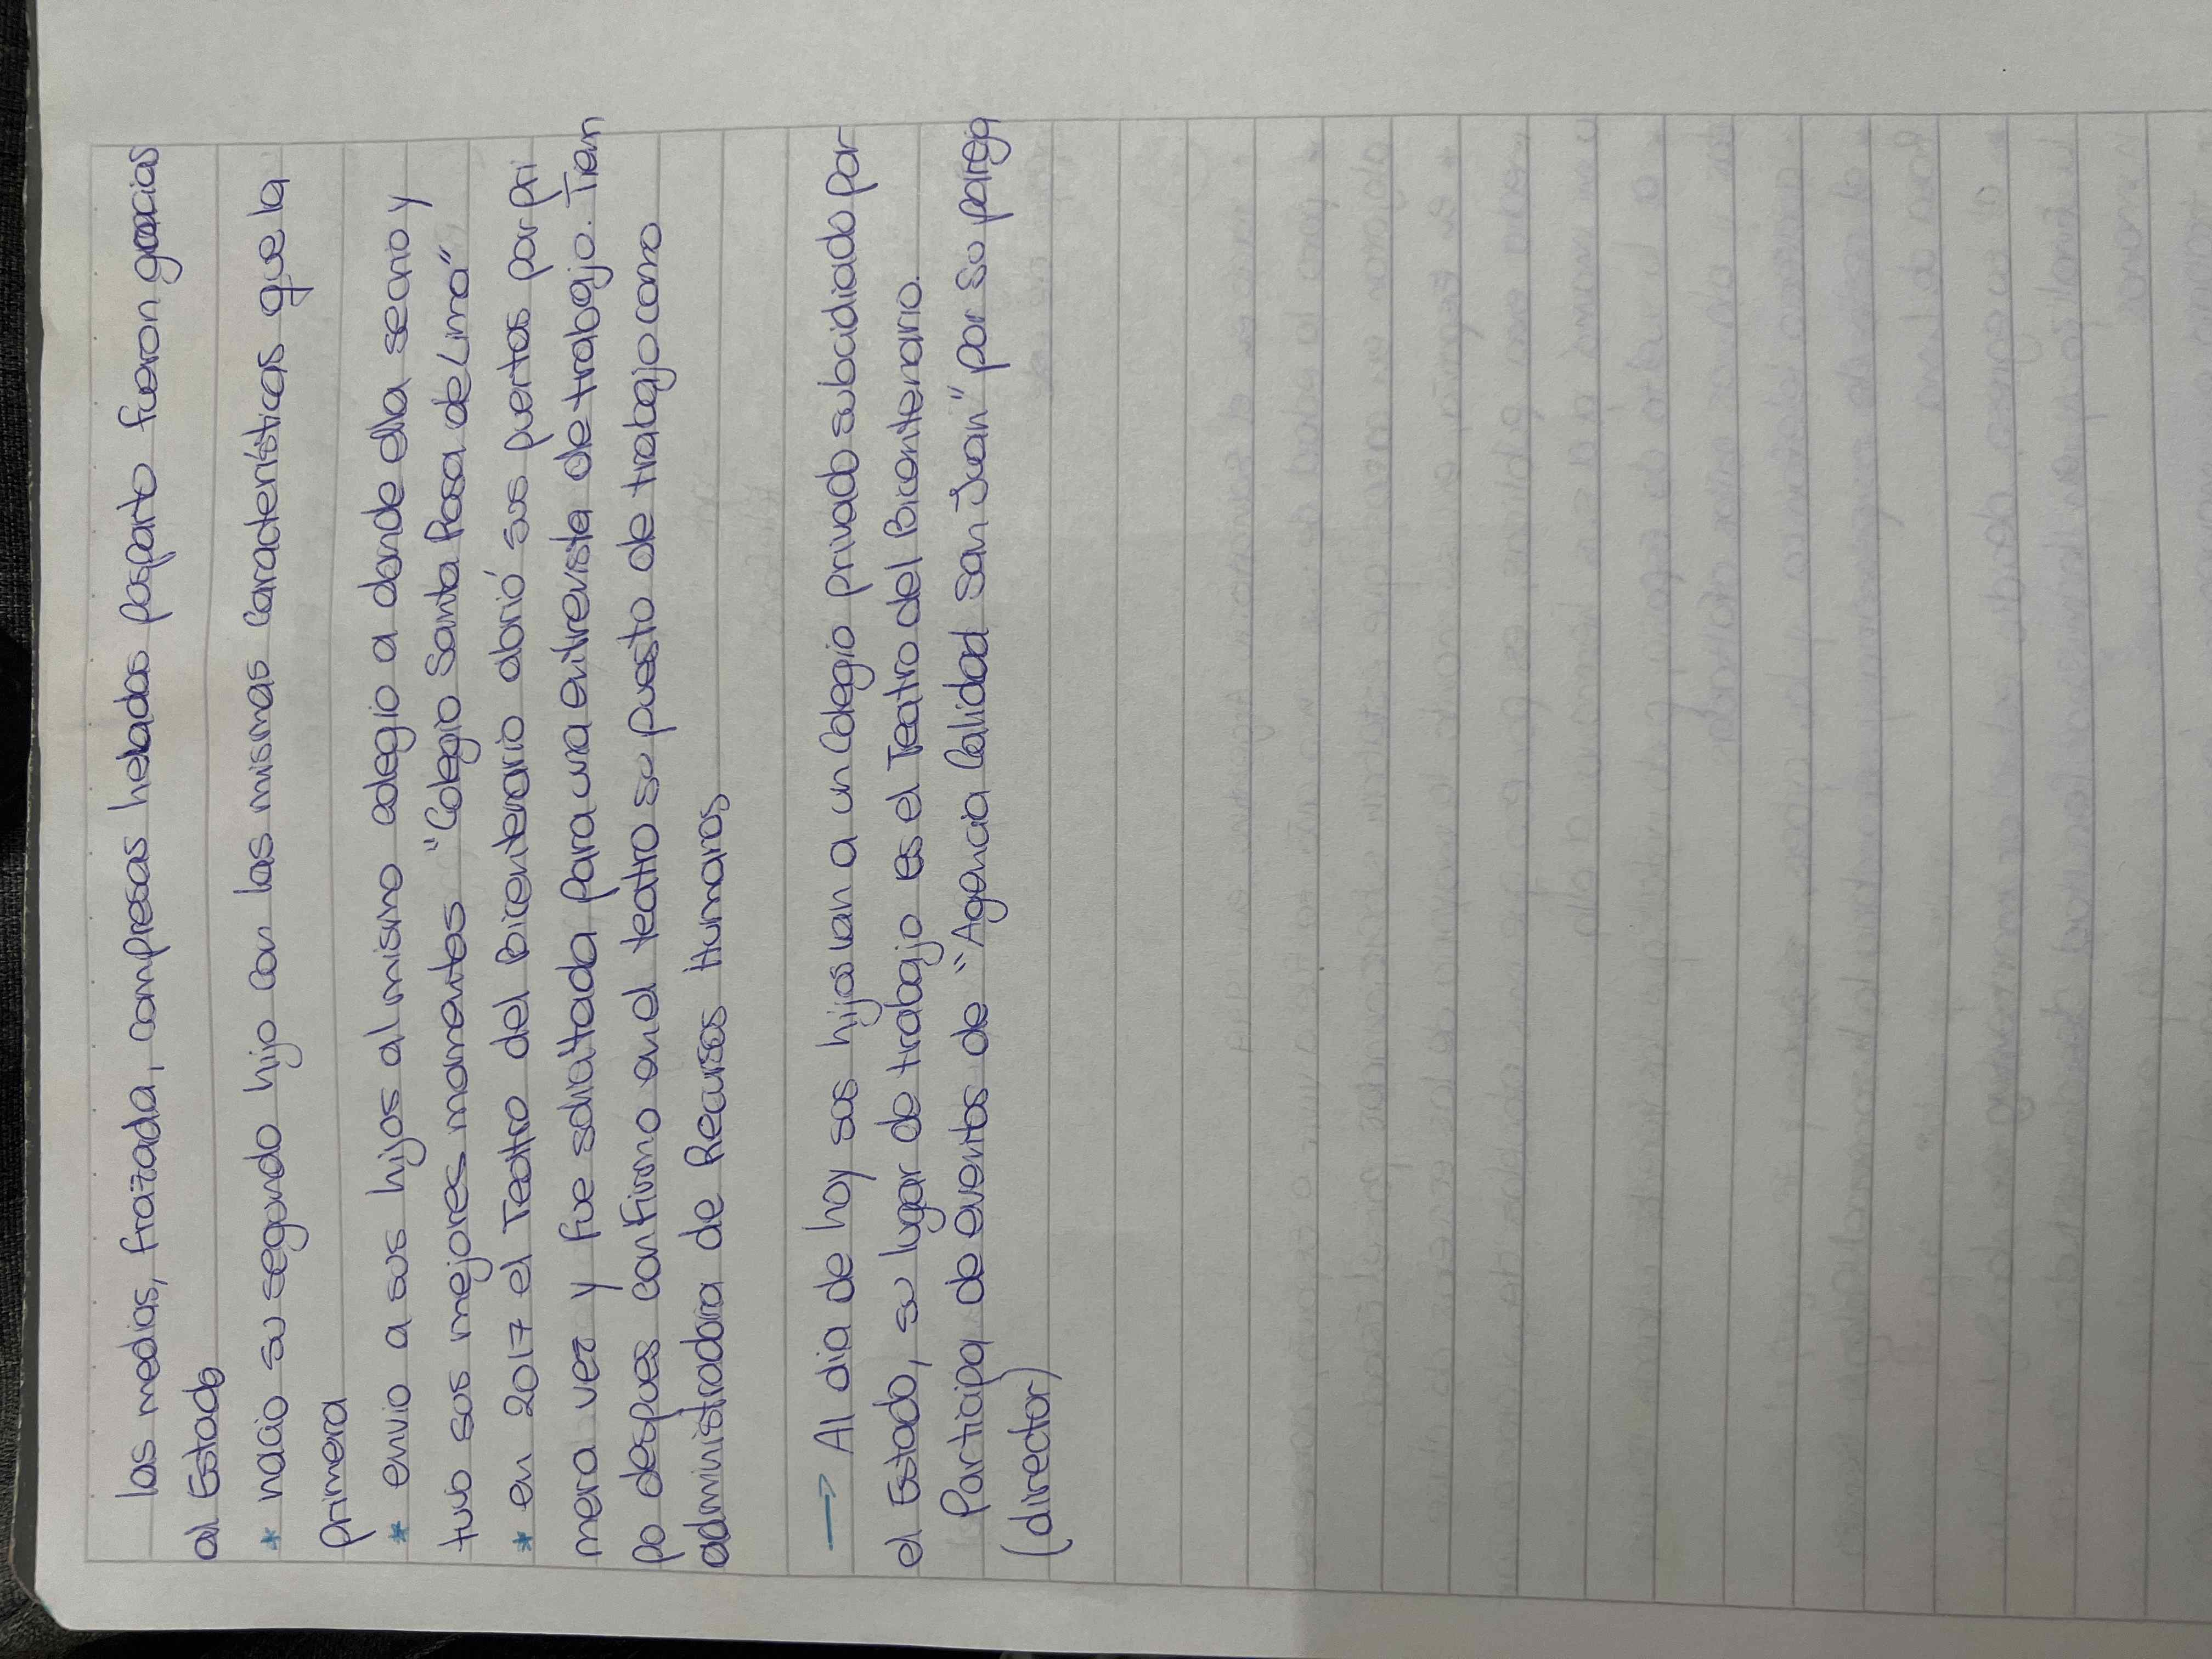 las medias, frazada, compresas heladas posparto fueron gracias
al Estado
* nacio su segundo hijo con las mismas características que la
primera
* envio a sus hijos al mismo colegio a donde ella secano y
tuvo sus mejores momentos "Colegio Santa Rosa de Lima"
* en 2017 el Teatro del Bicentenario abrió sus puertas por pri
mera vez y fue solicitada para una entrevista de trabajo. Tiem
po despues confirmo en el teatro su puesto de trabajo como
administradora de Recursos Humanos
→ Al dia de hoy sus hijos van a un Colegio privado subcidiado por
el Estado, su lugar de trabajo es el Teatro del Bicentenario.
Participa de eventos de "Agencia Calidad San Juan" por su pareja
(director)